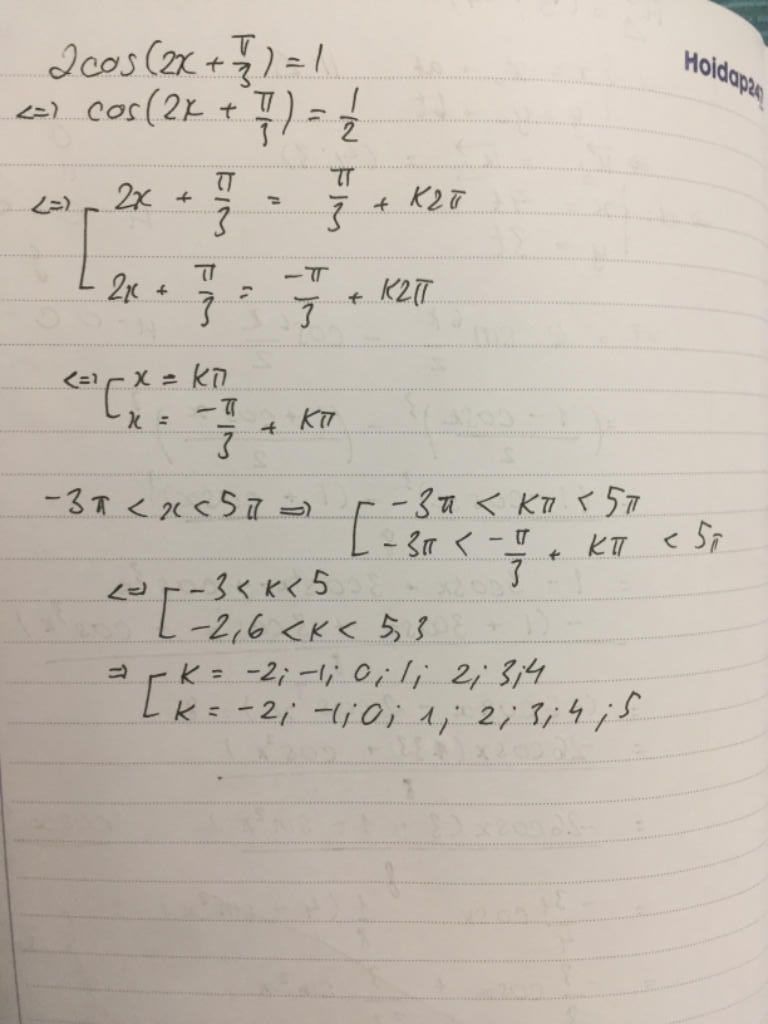 Hoidap247
2cos(2x + π/3) = 1
<=> cos(2x + π/3) = 1/2
<=> [ 2x + π/3 = π/3 + K2π
2x + π/3 = -π/3 + K2π
<=> [ x = Kπ
x = -π/3 + Kπ
-3π < x < 5π => [ -3π < Kπ < 5π
-3π < -π/3 + Kπ < 5π
<=> [ -3 < K < 5
-2,6 < K < 5,3
=> [ K = -2; -1; 0; 1; 2; 3; 4
K = -2; -1; 0; 1; 2; 3; 4; 5